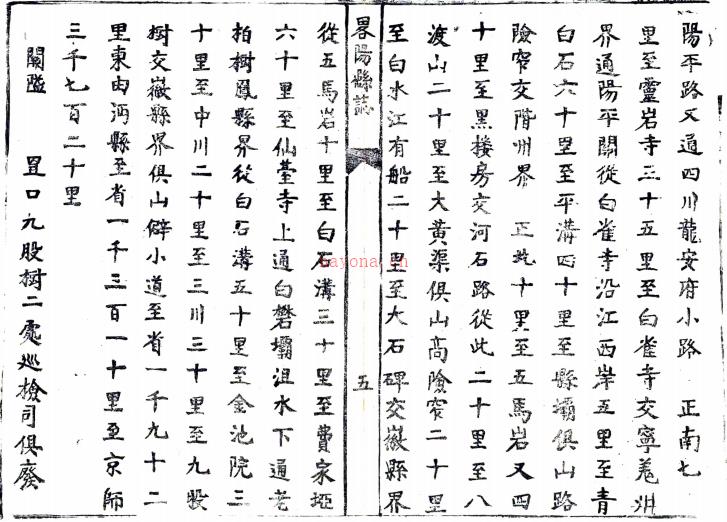 陽平路又通四川龍安府小路　正南七
里至靈岩寺三十五里至白雀寺交寧羗州
界通陽平關從白雀寺沿江西岸五里至青
白石六十里至平溝四十里至縣壩俱山路
險窄交階州界　正北十里至五馬岩又四
十里至黑楼房交河石路從此二十里至八
渡山二十里至大黃渠俱山高險窄二十里
至白水江有船二十里至大石碑交徽縣界
畧陽縣誌
五
從五馬岩十里至白石溝三十里至費家埡
六十里至仙臺寺上通白礬壩沮水下通老
柏樹鳳縣界從白石溝五十里至金池院三
十里至中川二十里至三川三十里至九股
樹交徽縣界俱山僻小道至省一千九十二
里東由沔縣至省一千三百一十里至京師
三千七百二十里
關隘　罝口九股樹二處巡檢司俱廢
bayona.cn